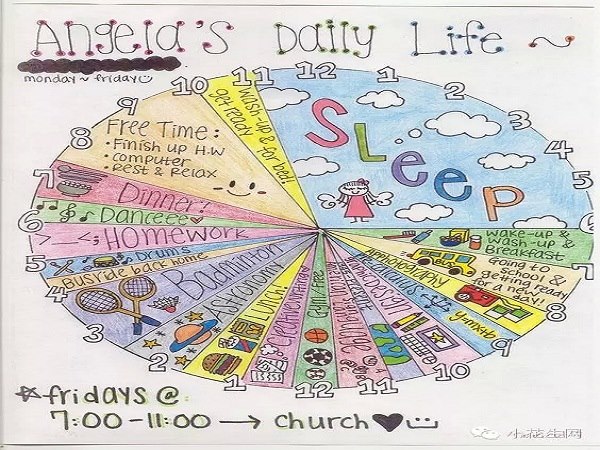 Angela's Daily Life ~
monday ~ friday
11 12 1
10 2
9 3
8 4
7 5
6 6
5 7
4 8
3 9
2 10
1 12 11
Sleep
wash-up &
get ready for bed!
Free Time:
• Finish up H.W
• computer
• Rest & Relax
Dinner!
Danceee
Homework
Drums
Bus ride back home
Badminton
Astronomy
Lunch!
Creative writing
wake-up &
wash-up &
Breakfast
Going to
school &
getting ready
for a new
day!
y=mx+b
*fridays @
7:00-11:00 → church
小花生网